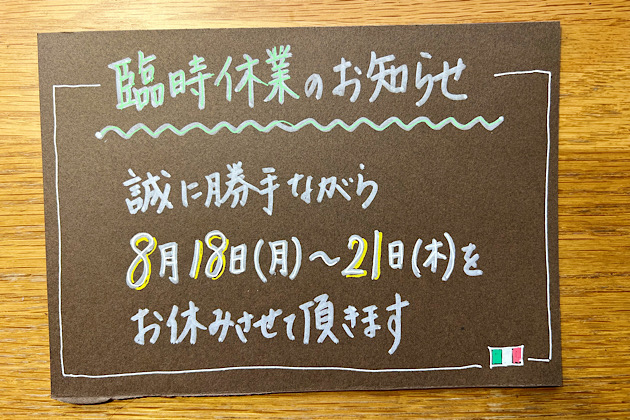 臨時休業のお知らせ
誠に勝手ながら
8月18日(月)～21日(木)を
お休みさせて頂きます